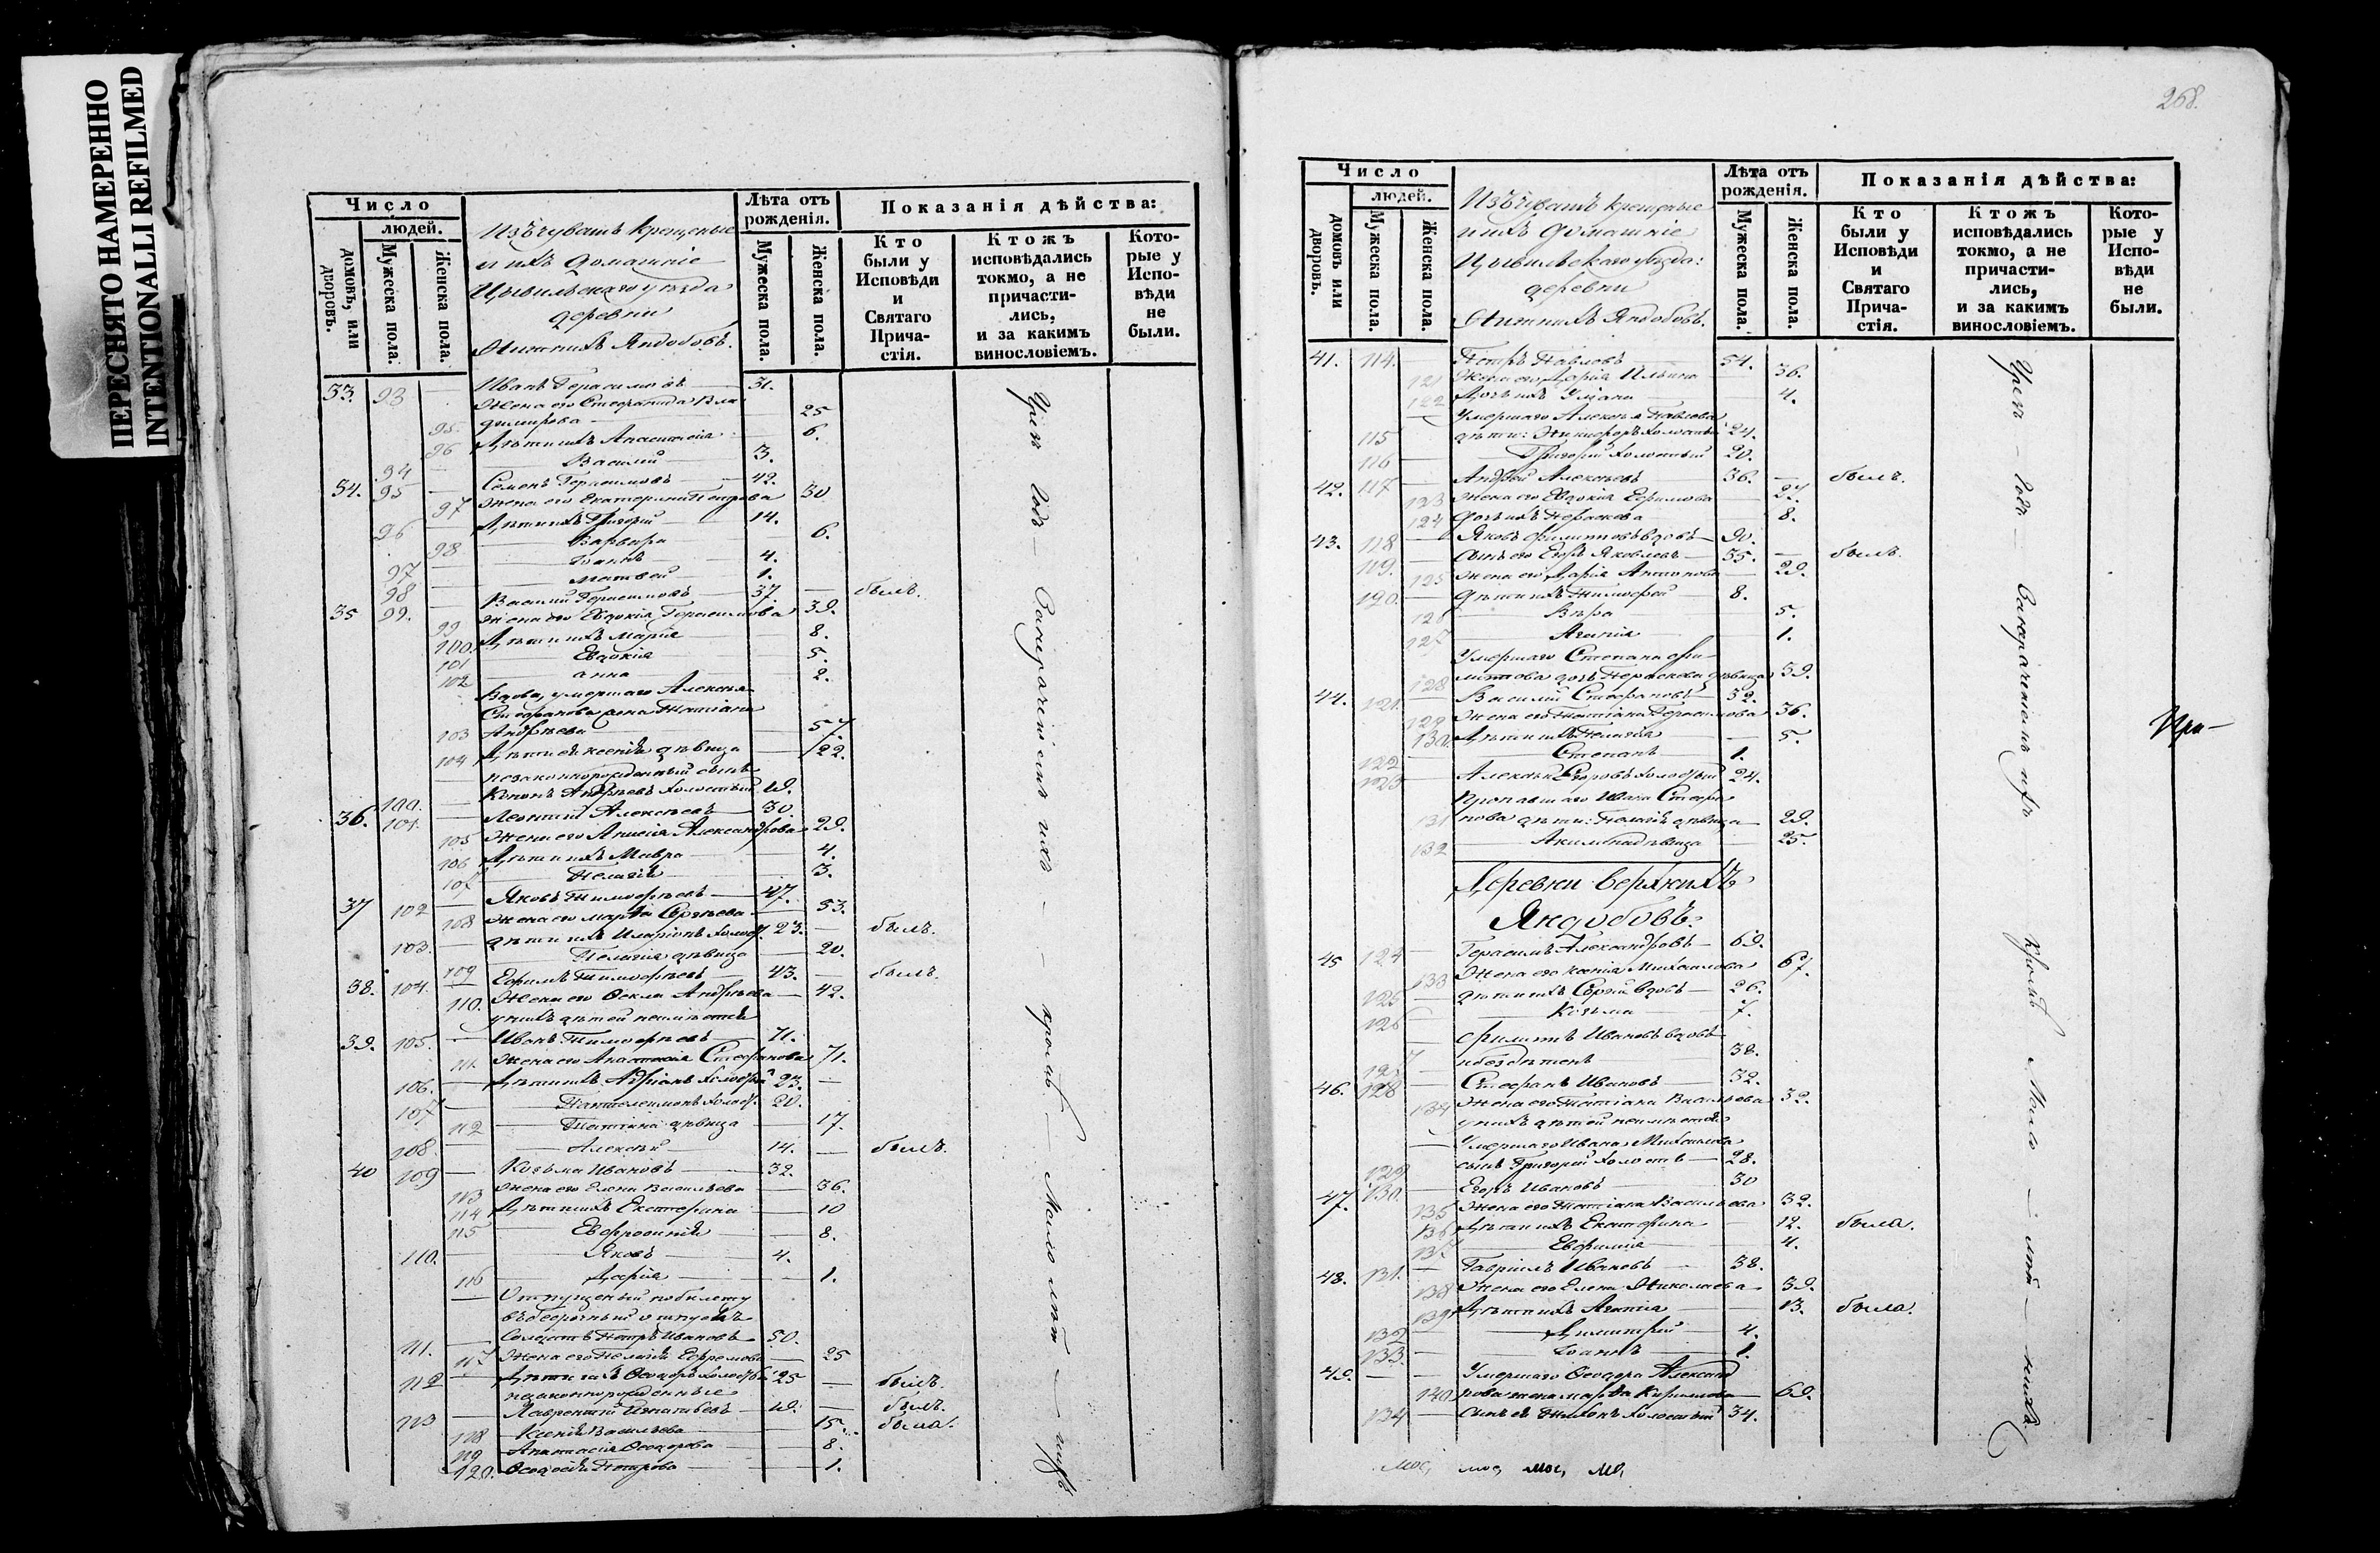 ПЕРЕСНЯТО НАМЕРЕННО
INTENTIONALLI REFILMED
Число
людей.
домовъ, или дворовъ.
Мужеска пола.
Женска пола.
Изъ чувашъ крещеные
и ихъ домашніе
Цывильскаго уезда
деревни
Нижнихъ Яндобовъ.
Лѣта отъ рожденія.
Мужеска пола.
Женска пола.
Показанія дѣйства:
Кто были у Исповѣди и Святаго Причастія.
Ктожъ исповѣдались токмо, а не причастились, и за какимъ винословіемъ.
Которые у Исповѣди не были.
33. 93 — Иванъ Герасимовъ 31.
Жена его Стефанида Вла
95. димирова 25
96 Дѣти ихъ Анастасія 6.
94 — Василий 3.
34. 95 — Семенъ Герасимовъ 42.
97 Жена его Екатерина Петрова 30
96 Дѣти ихъ Григорій 14.
98 Варвара 6.
97 — Іоаннъ 4.
98 — Матвей 1.
35 99. — Василий Герасимовъ 37. — былъ.
99 Жена его Евдокія Герасимова 39.
100. Дѣти ихъ Марія 8.
101 Евдокія 5.
102 Анна 2.
Вдова, умершаго Алексея
Стефанова жена Татіана
103 Андрѣева 57.
104 Дѣти ея Ксенія дѣвица 22.
незаконнорожденный сынъ
100. — Кононъ Андрѣевъ холостый 19.
36. 101. — Леонтий Алексѣевъ 30.
105 Жена его Анисія Александрова 29.
106 Дѣти ихъ Мавра 4.
107 Пелагія 3.
37 102 — Яковъ Тимофѣевъ 47.
108 Жена его Марѳа Сергѣева 53.
103. — Дѣти ихъ Иларіонъ холост. 23. — былъ.
109 Пелагія дѣвица 20.
38. 104. — Ефимъ Тимофѣевъ 43. — былъ.
110. Жена его Ѳекла Андрѣева 42.
у нихъ дѣтей неимѣется
39. 105. — Иванъ Тимофѣевъ 71.
111. Жена его Анастасія Стефанова 71.
106. — Дѣти ихъ Адріанъ холостый 23. —
107 — Пантелеимонъ холост. 20.
112 Татіана дѣвица 17.
108. — Алексѣй 14. — былъ.
40 109 — Козьма Ивановъ 32.
113 Жена его Елена Васильева 36.
114 Дѣти ихъ Екатерина 10
115 Евфросинія 8.
110. — Яковъ 4.
116 Дарія 1.
Отпущеный по билету
въ безсрочный отпускъ
111. — Солдатъ Петръ Ивановъ 50.
117 Жена его Пелагія Ефремова 25
112 — Дѣти ихъ Ѳеодоръ холостый 25 — былъ.
незаконнорожденные
113 — Лаврентій Игнатьевъ 19. — былъ.
118 Ксенія Васильева 15. была.
119 Анастасія Ѳеодорова 8.
120. Ѳеодосія Петрова 1.
Чрезъ годъ — Сопряженіемъ ихъ — кромѣ — Мало лѣт — нихъ
268.
Число
людей.
домовъ или дворовъ.
Мужеска пола.
Женска пола.
Изъ чувашъ крещеные
и ихъ домашніе
Цывильскаго уѣзда:
деревни
Нижнихъ Яндобовъ.
Лѣта отъ рожденія.
Мужеска пола.
Женска пола.
Показанія дѣйства:
Кто были у Исповѣди и Святаго Причастія.
Ктожъ исповѣдались токмо, а не причастились, и за какимъ винословіемъ.
Которые у Исповѣди не были.
41. 114. — Петръ Павловъ 54.
121 Жена его Дарія Ильина 36.
122 Дочь ихъ Уліана 4.
Умершаго Алексѣя Павлова
115 дѣти: Никифоръ холостый 24.
116 — Григорій холостый 20.
42. 117 — Андрей Алексѣевъ 36. — былъ.
123 Жена его Евдокія Ефимова 27.
124 дочь ихъ Параскева 8.
43. 118 — Яковъ Филипповъ вдовъ 90.
119. — Сынъ его Егоръ Яковлевъ 35. — былъ.
125 Жена его Дарія Антонова 29.
120. — Дѣти ихъ Тимофей 8.
126 Вѣра 5.
127 Агапія 1.
Умершаго Степана Фи
128 липпова дочь Параскева дѣвица 39.
44. 121. — Василий Стефановъ 32.
129 Жена его Татіана Герасимова 36.
130. Дѣти ихъ Пелагія 5.
122 — Степанъ 1.
123 — Алексѣй Егоровъ холостый 24.
Пропавшаго Ивана Стефа
131 нова дѣти: Пелагія дѣвица 29.
132 Акилина дѣвица 25.
Деревни Верхнихъ
Яндобовъ.
45 124 — Герасимъ Александровъ 69.
133 Жена его Ксенія Михайлова 67.
125 — Дѣти ихъ Сергій вдовъ 26.
126 — Козьма 7.
Филиппъ Ивановъ вдовъ
127 — и бездѣтенъ 38.
46. 128 — Стефанъ Ивановъ 32.
134 Жена его Татіана Васильева 32.
у нихъ дѣтей неимѣется
Умершаго Ивана Михайлова
129 — сынъ Григорій холостъ 28.
47. 130. — Егоръ Ивановъ 30
135 Жена его Татіана Васильева 32.
136 Дѣти ихъ Екатерина 12. была.
137 Евфимія 4.
48. 131. — Гавріилъ Ивановъ 38.
138 Жена его Елена Николаева 39.
139 Дѣти ихъ Агапія 13. была.
132 — Димитрій 4.
133. — Іоаннъ 1.
49. — — Умершаго Ѳеодора Александ
140. рова жена Марѳа Кирилова 69.
134 — Сынъ ея Тихонъ холостый 34.
Чрезъ — годъ — кромѣ Мало — лѣт — нихъ